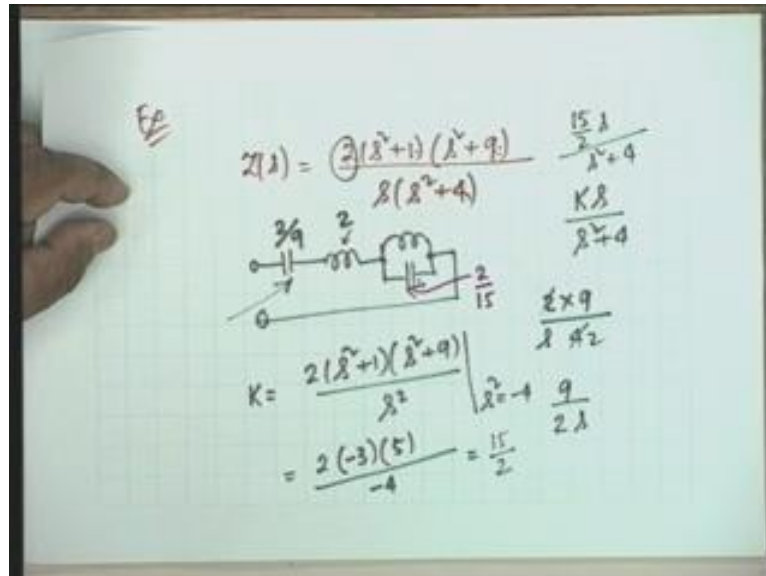 Ex
Z(s) = 2(s²+1)(s²+9) / s(s²+4)
15/2 s / s²+4
Ks / s²+4
2/9 2
2/15
2×9 / s 4 2
9 / 2s
K = 2(s²+1)(s²+9) / s² | s²=-4
= 2(-3)(5) / -4 = 15/2